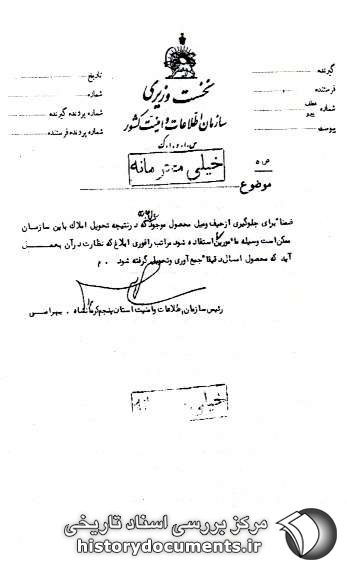 گیرنده
فرستنده
شماره عطف پیرو
پیوست
نخست وزیری
سازمان اطلاعات و امنیت کشور
س.ا.و.ا.ک
تاریخ
شماره
شماره پرونده گیرنده
شماره پرونده فرستنده
خیلی محرمانه
موضوع
ضمنا" برای جلوگیری از حیف ومیل محصول موجود که در نتیجه تحویل املاک باین سازمان
ممکن است وسیله مامورین استفاده شود مراتب را فوری ابلاغ که نظارت در آن بعمل
آید که محصول امسال دقیقا" جمع آوری و تحویل گرفته شود . م
رئیس سازمان اطلاعات وامنیت استان پنجم کرمانشاه .
خیلی
مرکز بررسی اسناد تاریخی
historydocuments.ir